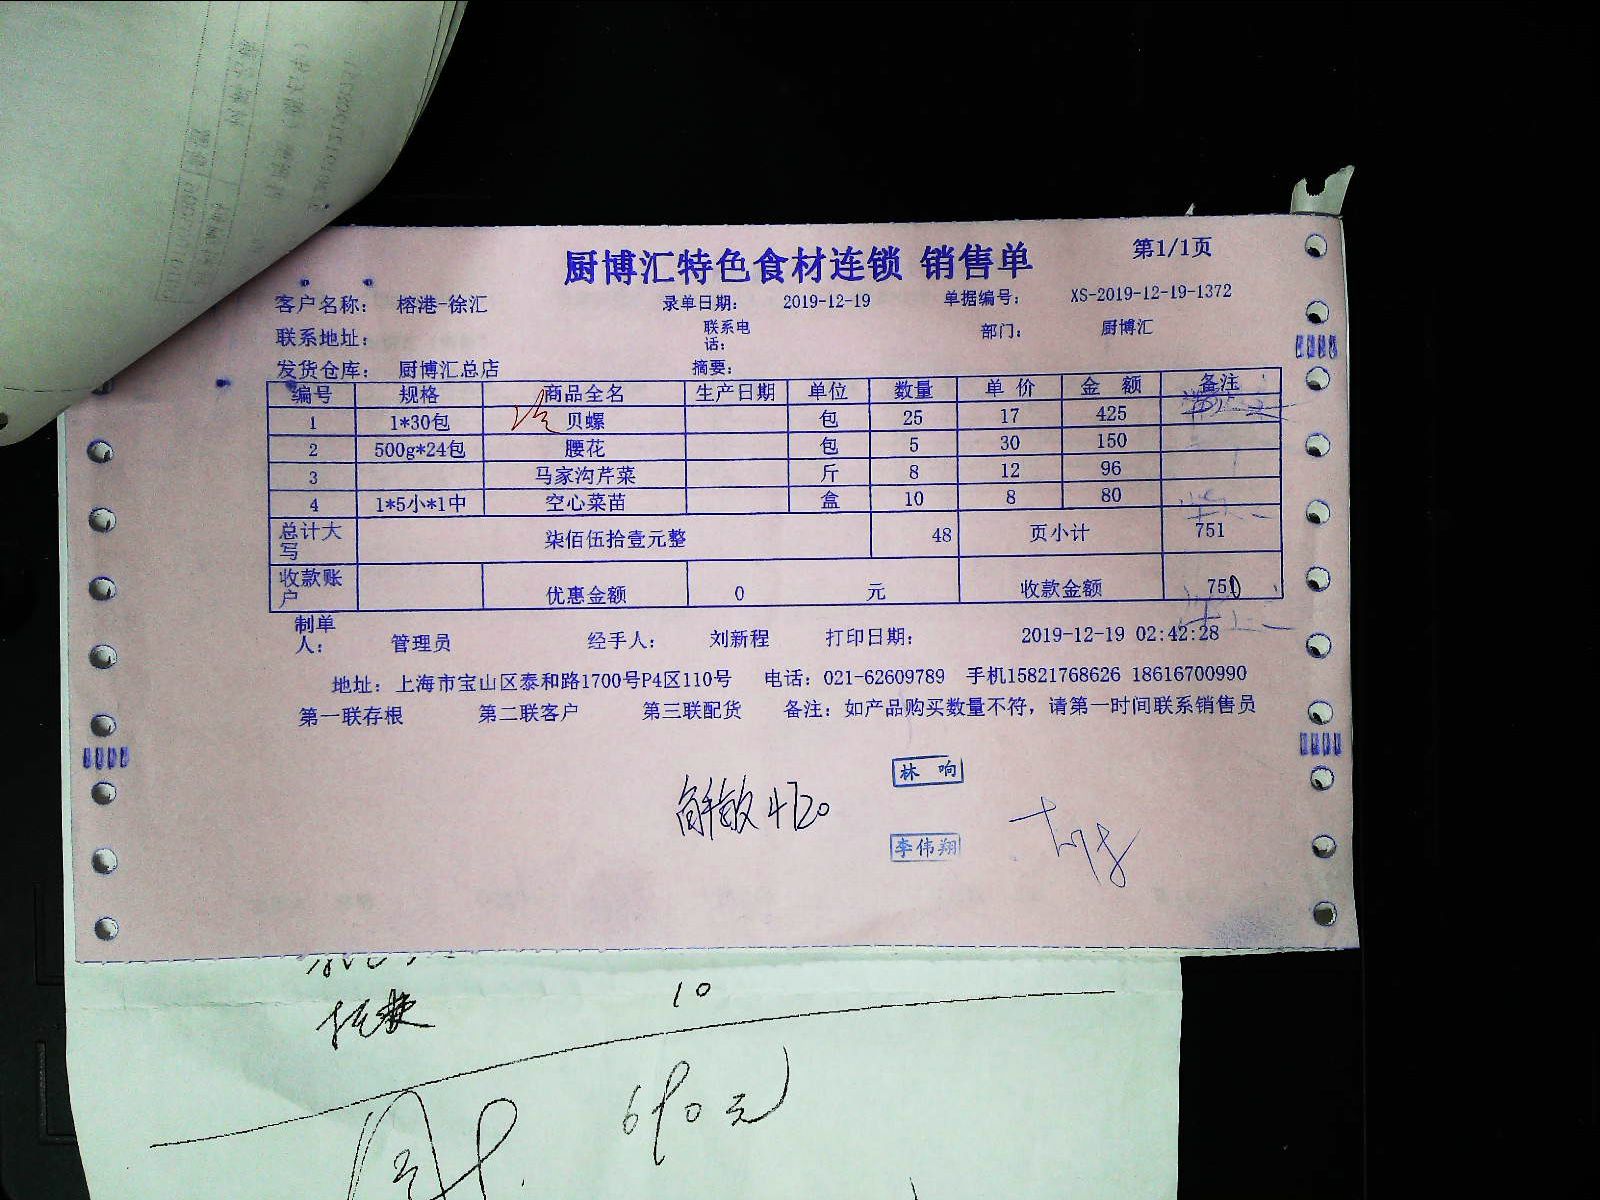 厨博汇特色食材连锁 销售单 第1/1页
客户名称： 榕港-徐汇 录单日期： 2019-12-19 单据编号： XS-2019-12-19-1372
联系地址： 联系电话： 部门： 厨博汇
发货仓库： 厨博汇总店 摘要：
编号 规格 商品全名 生产日期 单位 数量 单 价 金 额 备注
1 1*30包 贝螺 包 25 17 425
2 500g*24包 腰花 包 5 30 150
3 马家沟芹菜 斤 8 12 96
4 1*5小*1中 空心菜苗 盒 10 8 80
总计大写 柒佰伍拾壹元整 48 页小计 751
收款账户 优惠金额 0 元 收款金额 750
制单人： 管理员 经手人： 刘新程 打印日期： 2019-12-19 02:42:28
地址：上海市宝山区泰和路1700号P4区110号 电话：021-62609789 手机15821768626 18616700990
第一联存根 第二联客户 第三联配货 备注：如产品购买数量不符，请第一时间联系销售员
林 响
李伟翔
10
690元